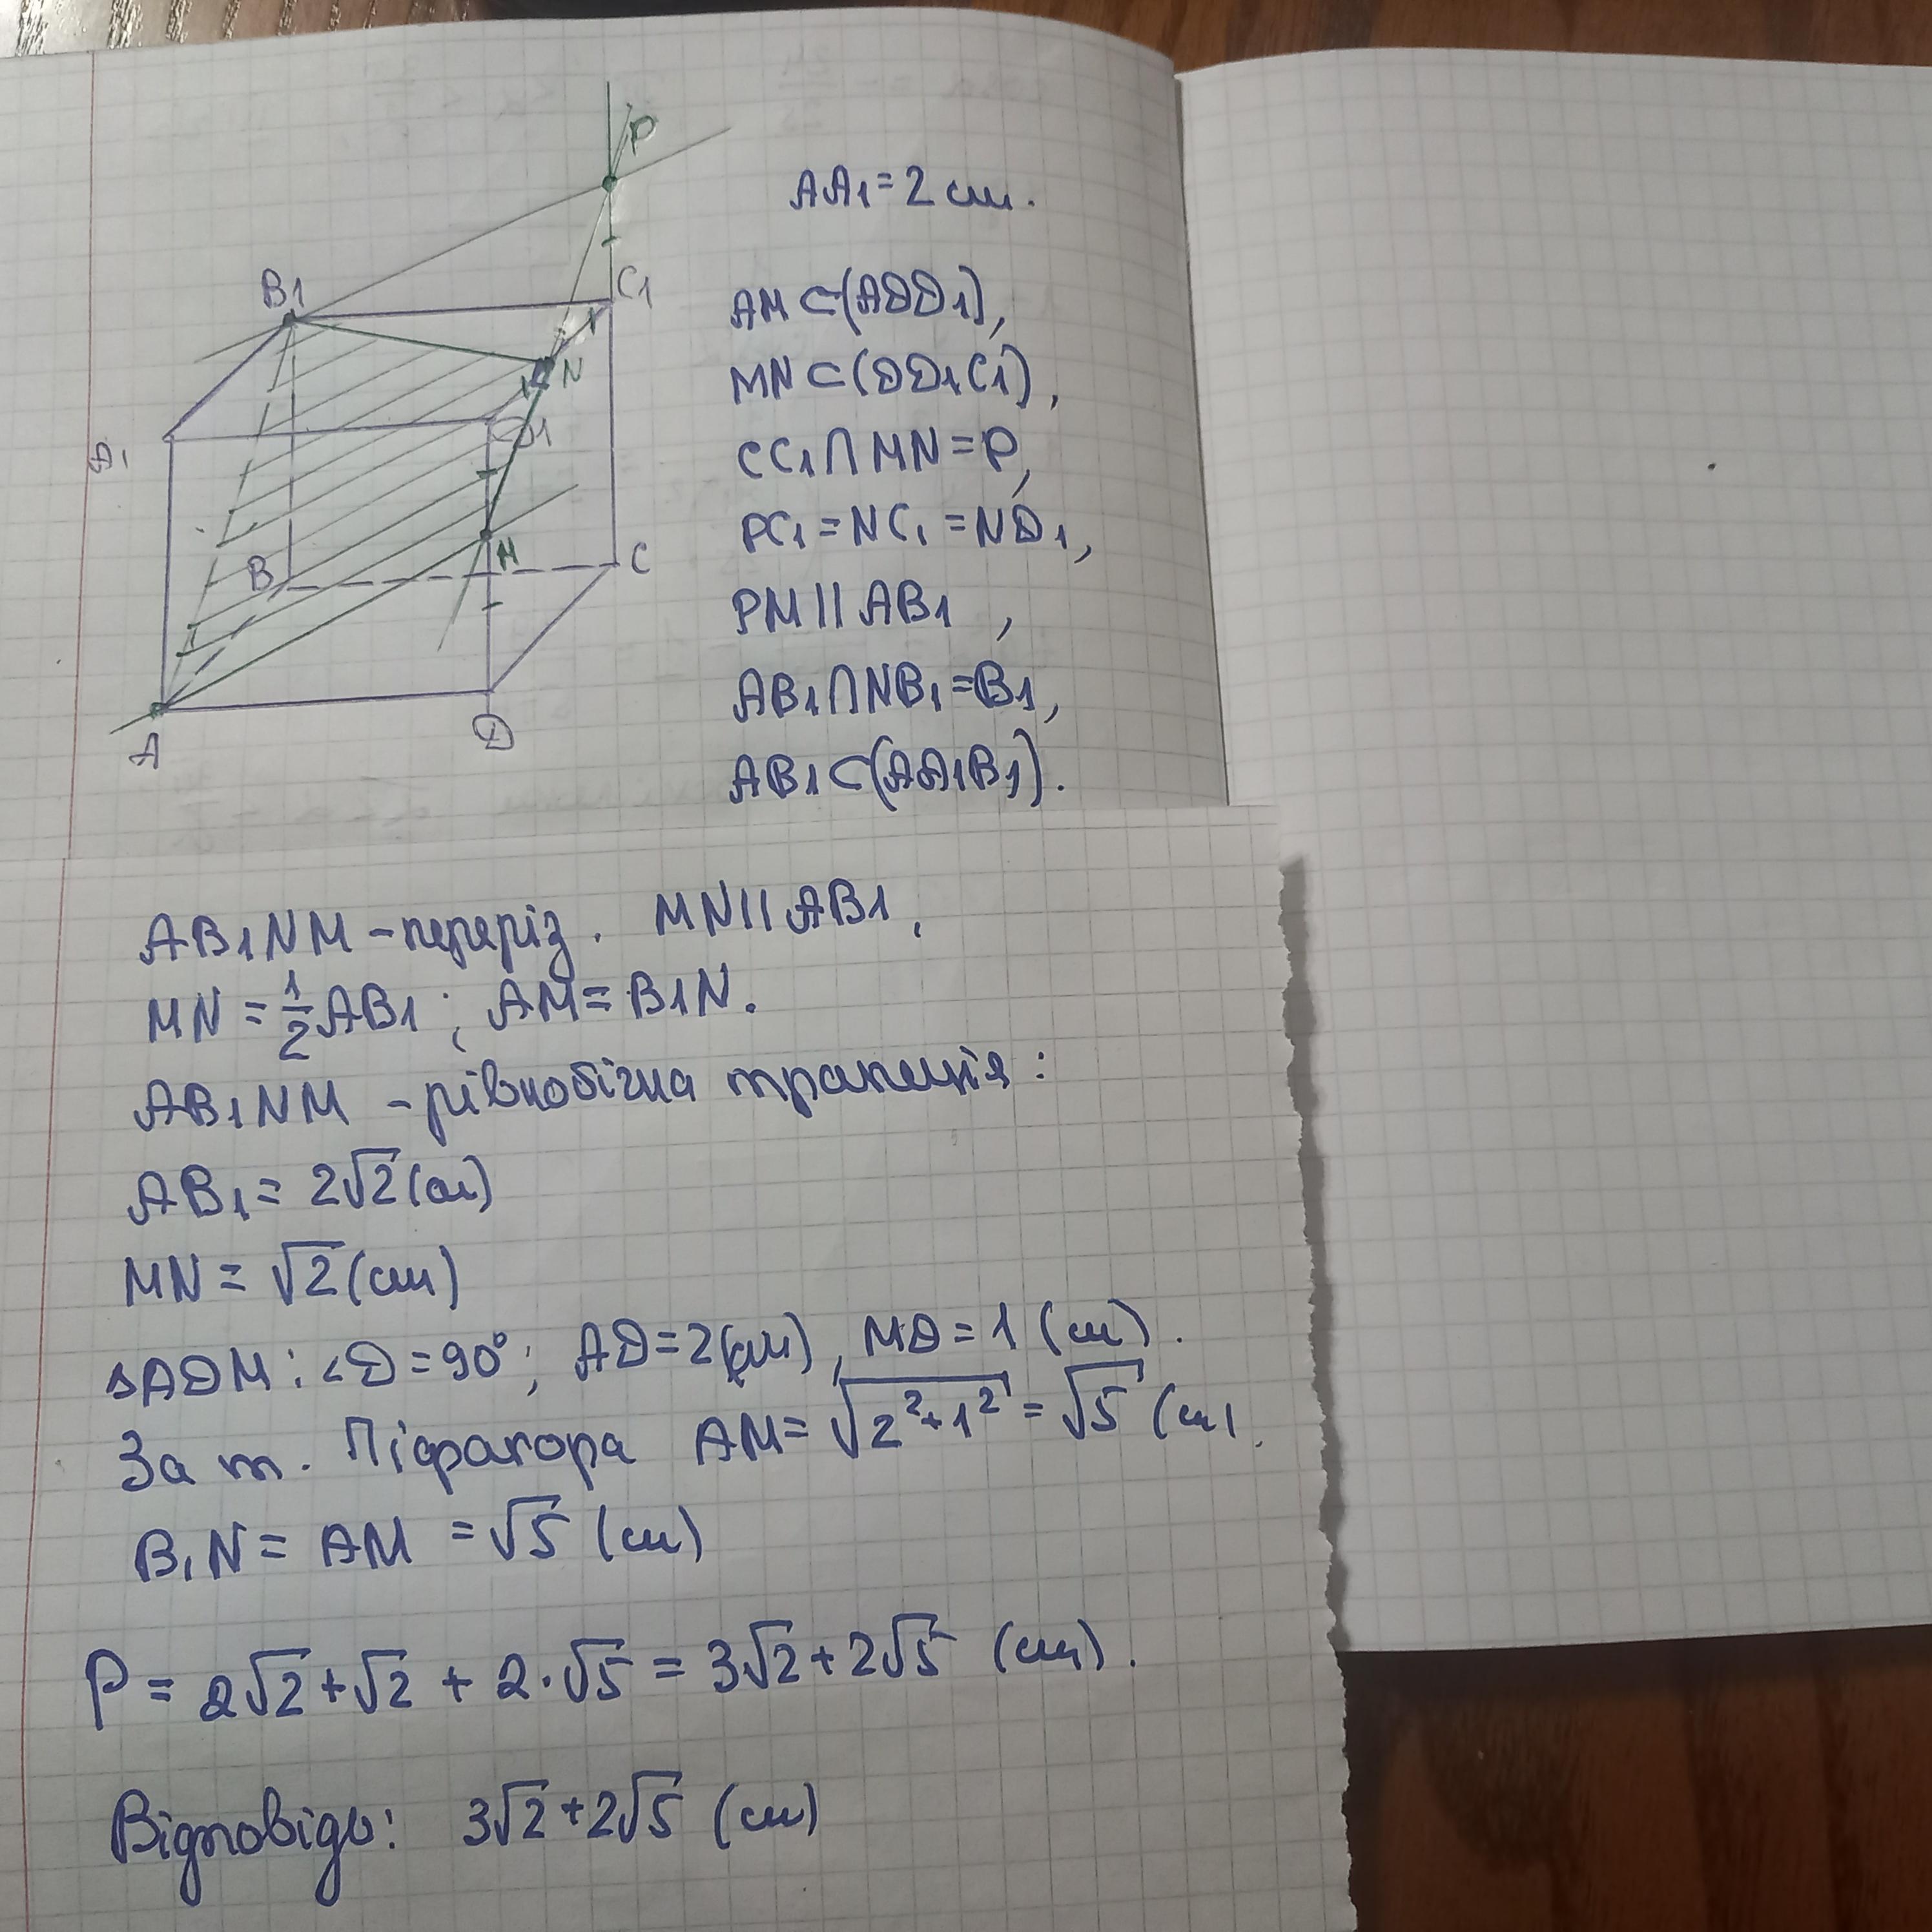 P
B₁
C₁
N
A₁
D₁
M
B
C
A
D
AA₁=2 см.
AM⊂(ADD₁),
MN⊂(DD₁C₁),
CC₁∩MN=P,
PC₁=NC₁=ND₁,
PM||AB₁,
AB₁∩NB₁=B₁,
AB₁⊂(AA₁B₁).
AB₁NM – переріз. MN||AB₁,
MN=½AB₁; AM=B₁N.
AB₁NM – рівнобічна трапеція:
AB₁=2√2(см)
MN=√2(см)
△ADM: ∠D=90°; AD=2(см), MD=1(см).
За т. Піфагора AM=√(2²+1²)=√5 (см).
B₁N=AM=√5 (см)
P=2√2+√2+2·√5=3√2+2√5 (см).
Відповідь: 3√2+2√5 (см)